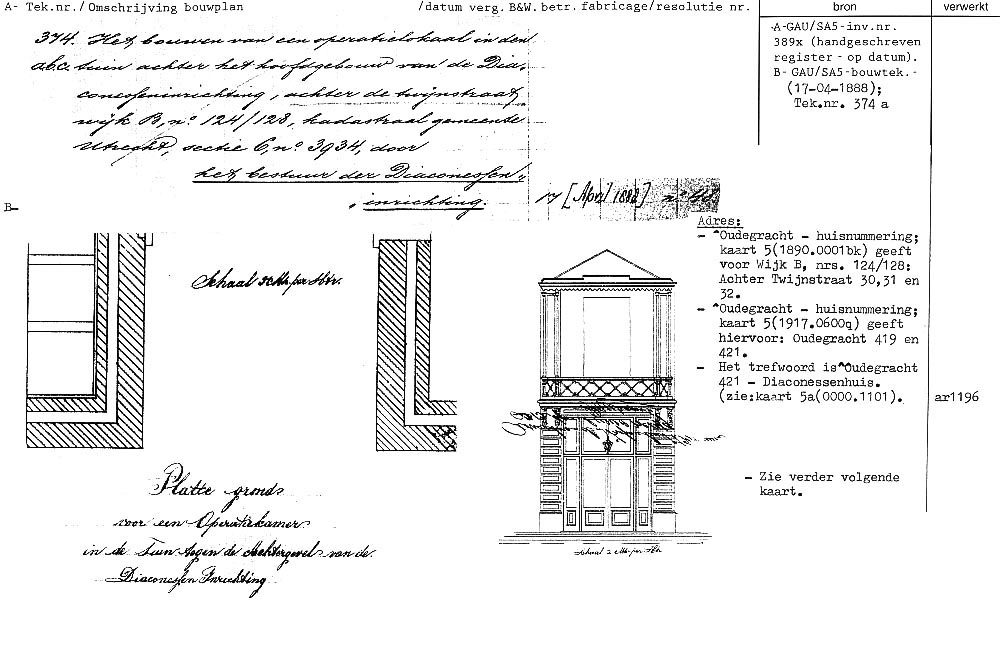 A- Tek.nr./Omschrijving bouwplan /datum verg. B&W. betr. fabricage/resolutie nr. bron verwerkt
374. Het bouwen van een operatielokaal in den
a.b.c. tuin achter het hoofdgebouw van de Dia-
conesseninrichting, achter de twijnstraat,
wijk B, no 124/128, kadastraal gemeente
Utrecht, sectie C, no 3934, door
het bestuur der Diaconessen-
inrichting.
17 [April 1888]
A-GAU/SA5-inv.nr.
389x (handgeschreven
register - op datum).
B- GAU/SA5-bouwtek.-
(17-04-1888);
Tek.nr. 374 a
B-
Adres:
- ^Oudegracht - huisnummering;
kaart 5(1890.0001bk) geeft
voor Wijk B, nrs. 124/128:
Achter Twijnstraat 30,31 en
32.
- ^Oudegracht - huisnummering;
kaart 5(1917.0600q) geeft
hiervoor: Oudegracht 419 en
421.
- Het trefwoord is^Oudegracht
421 - Diaconessenhuis.
(zie:kaart 5a(0000.1101).
ar1196
- Zie verder volgende
kaart.
Schaal per
Platte grond
voor een Operatiekamer
in de Tuin tegen de Achtergevel van de
Diaconessen Inrichting
Schaal 2